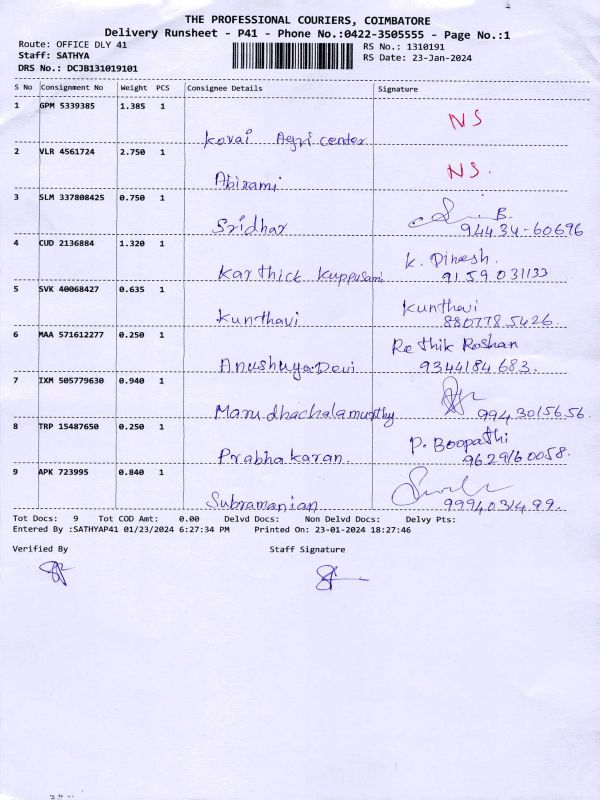 THE PROFESSIONAL COURIERS, COIMBATORE
Delivery Runsheet - P41 - Phone No.:0422-3505555 - Page No.:1
Route: OFFICE DLY 41
RS No.: 1310191
Staff: SATHYA
RS Date: 23-Jan-2024
DRS No.: DCJB131019101
S No Consignment No Weight PCS Consignee Details Signature
1 GPM 5339385 1.385 1
NS
Kovai Agri center
2 VLR 4561724 2.750 1
NS.
Abirami
3 SLM 337808425 0.750 1
Sridhar 94434-60696
4 CUD 2136884 1.320 1
K. Dinesh.
Karthick Kuppusami 9159031133
5 SVK 40068427 0.635 1
Kunthavi
Kunthavi 8807785426
6 MAA 571612277 0.250 1
Rethik Roshan
Anushuya Devi 9344184683.
7 IXM 505779630 0.940 1
Marudhachalamurthy 9943015656.
8 TRP 15487650 0.250 1
P. Boopathi
Prabhakaran. 9629160058.
9 APK 723995 0.840 1
Subramanian 9994031499.
Tot Docs: 9 Tot COD Amt: 0.00 Delvd Docs: Non Delvd Docs: Delvy Pts:
Entered By :SATHYAP41 01/23/2024 6:27:34 PM Printed On: 23-01-2024 18:27:46
Verified By Staff Signature